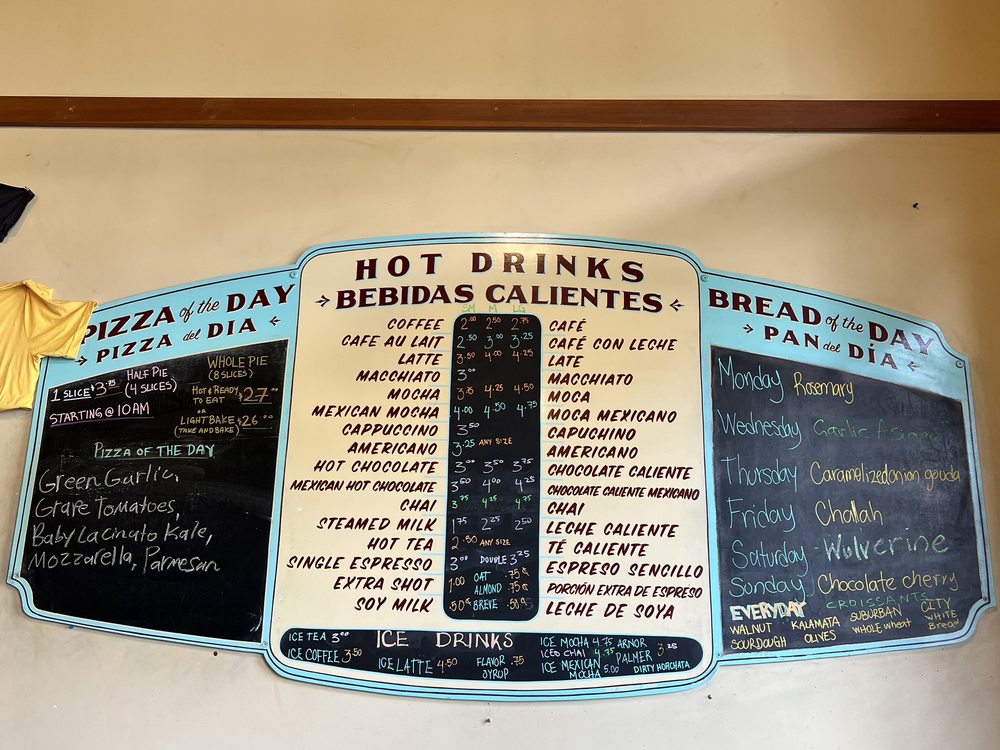 PIZZA of the DAY
PIZZA del DIA
1 SLICE $3.75
HALF PIE
(4 SLICES)
STARTING @ 10AM
WHOLE PIE
(8 SLICES)
HOT & READY
TO EAT $27.00
OR
LIGHT BAKE $26.00
(TAKE AND BAKE)
PIZZA OF THE DAY
Green Garlic,
Grape Tomatoes,
Baby Lacinato Kale,
Mozzarella, Parmesan
HOT DRINKS
BEBIDAS CALIENTES
SM M LG
COFFEE 2.00 2.50 2.75 CAFÉ
CAFE AU LAIT 2.50 3.00 3.25 CAFÉ CON LECHE
LATTE 3.50 4.00 4.25 LATE
MACCHIATO 3.00 MACCHIATO
MOCHA 3.75 4.25 4.50 MOCA
MEXICAN MOCHA 4.00 4.50 4.75 MOCA MEXICANO
CAPPUCCINO 3.50 CAPUCHINO
AMERICANO 3.25 ANY SIZE AMERICANO
HOT CHOCOLATE 3.00 3.50 3.75 CHOCOLATE CALIENTE
MEXICAN HOT CHOCOLATE 3.50 4.00 4.25 CHOCOLATE CALIENTE MEXICANO
CHAI 3.75 4.25 4.75 CHAI
STEAMED MILK 1.75 2.25 2.50 LECHE CALIENTE
HOT TEA 2.50 ANY SIZE TÉ CALIENTE
SINGLE ESPRESSO 3.00 DOUBLE 3.25 ESPRESO SENCILLO
EXTRA SHOT 1.00 OAT .75¢ PORCIÓN EXTRA DE ESPRESO
ALMOND .75¢
SOY MILK .50¢ BREVE .50¢ LECHE DE SOYA
ICE DRINKS
ICE TEA 3.00
ICE COFFEE 3.50
ICE LATTE 4.50
FLAVOR .75
SYRUP
ICE MOCHA 4.75
ICED CHAI 4.75
ICE MEXICAN 5.00
MOCHA
ARNOR
PALMER 3.25
DIRTY HORCHATA
BREAD of the DAY
PAN del DÍA
Monday Rosemary
Wednesday Garlic
Thursday Caramelized onion gouda
Friday Challah
Saturday - Wolverine
Sunday Chocolate cherry
CROISSANTS
EVERYDAY
WALNUT
SOURDOUGH
KALAMATA
OLIVES
SUBURBAN
WHOLE wheat
CITY
WHITE
Bread